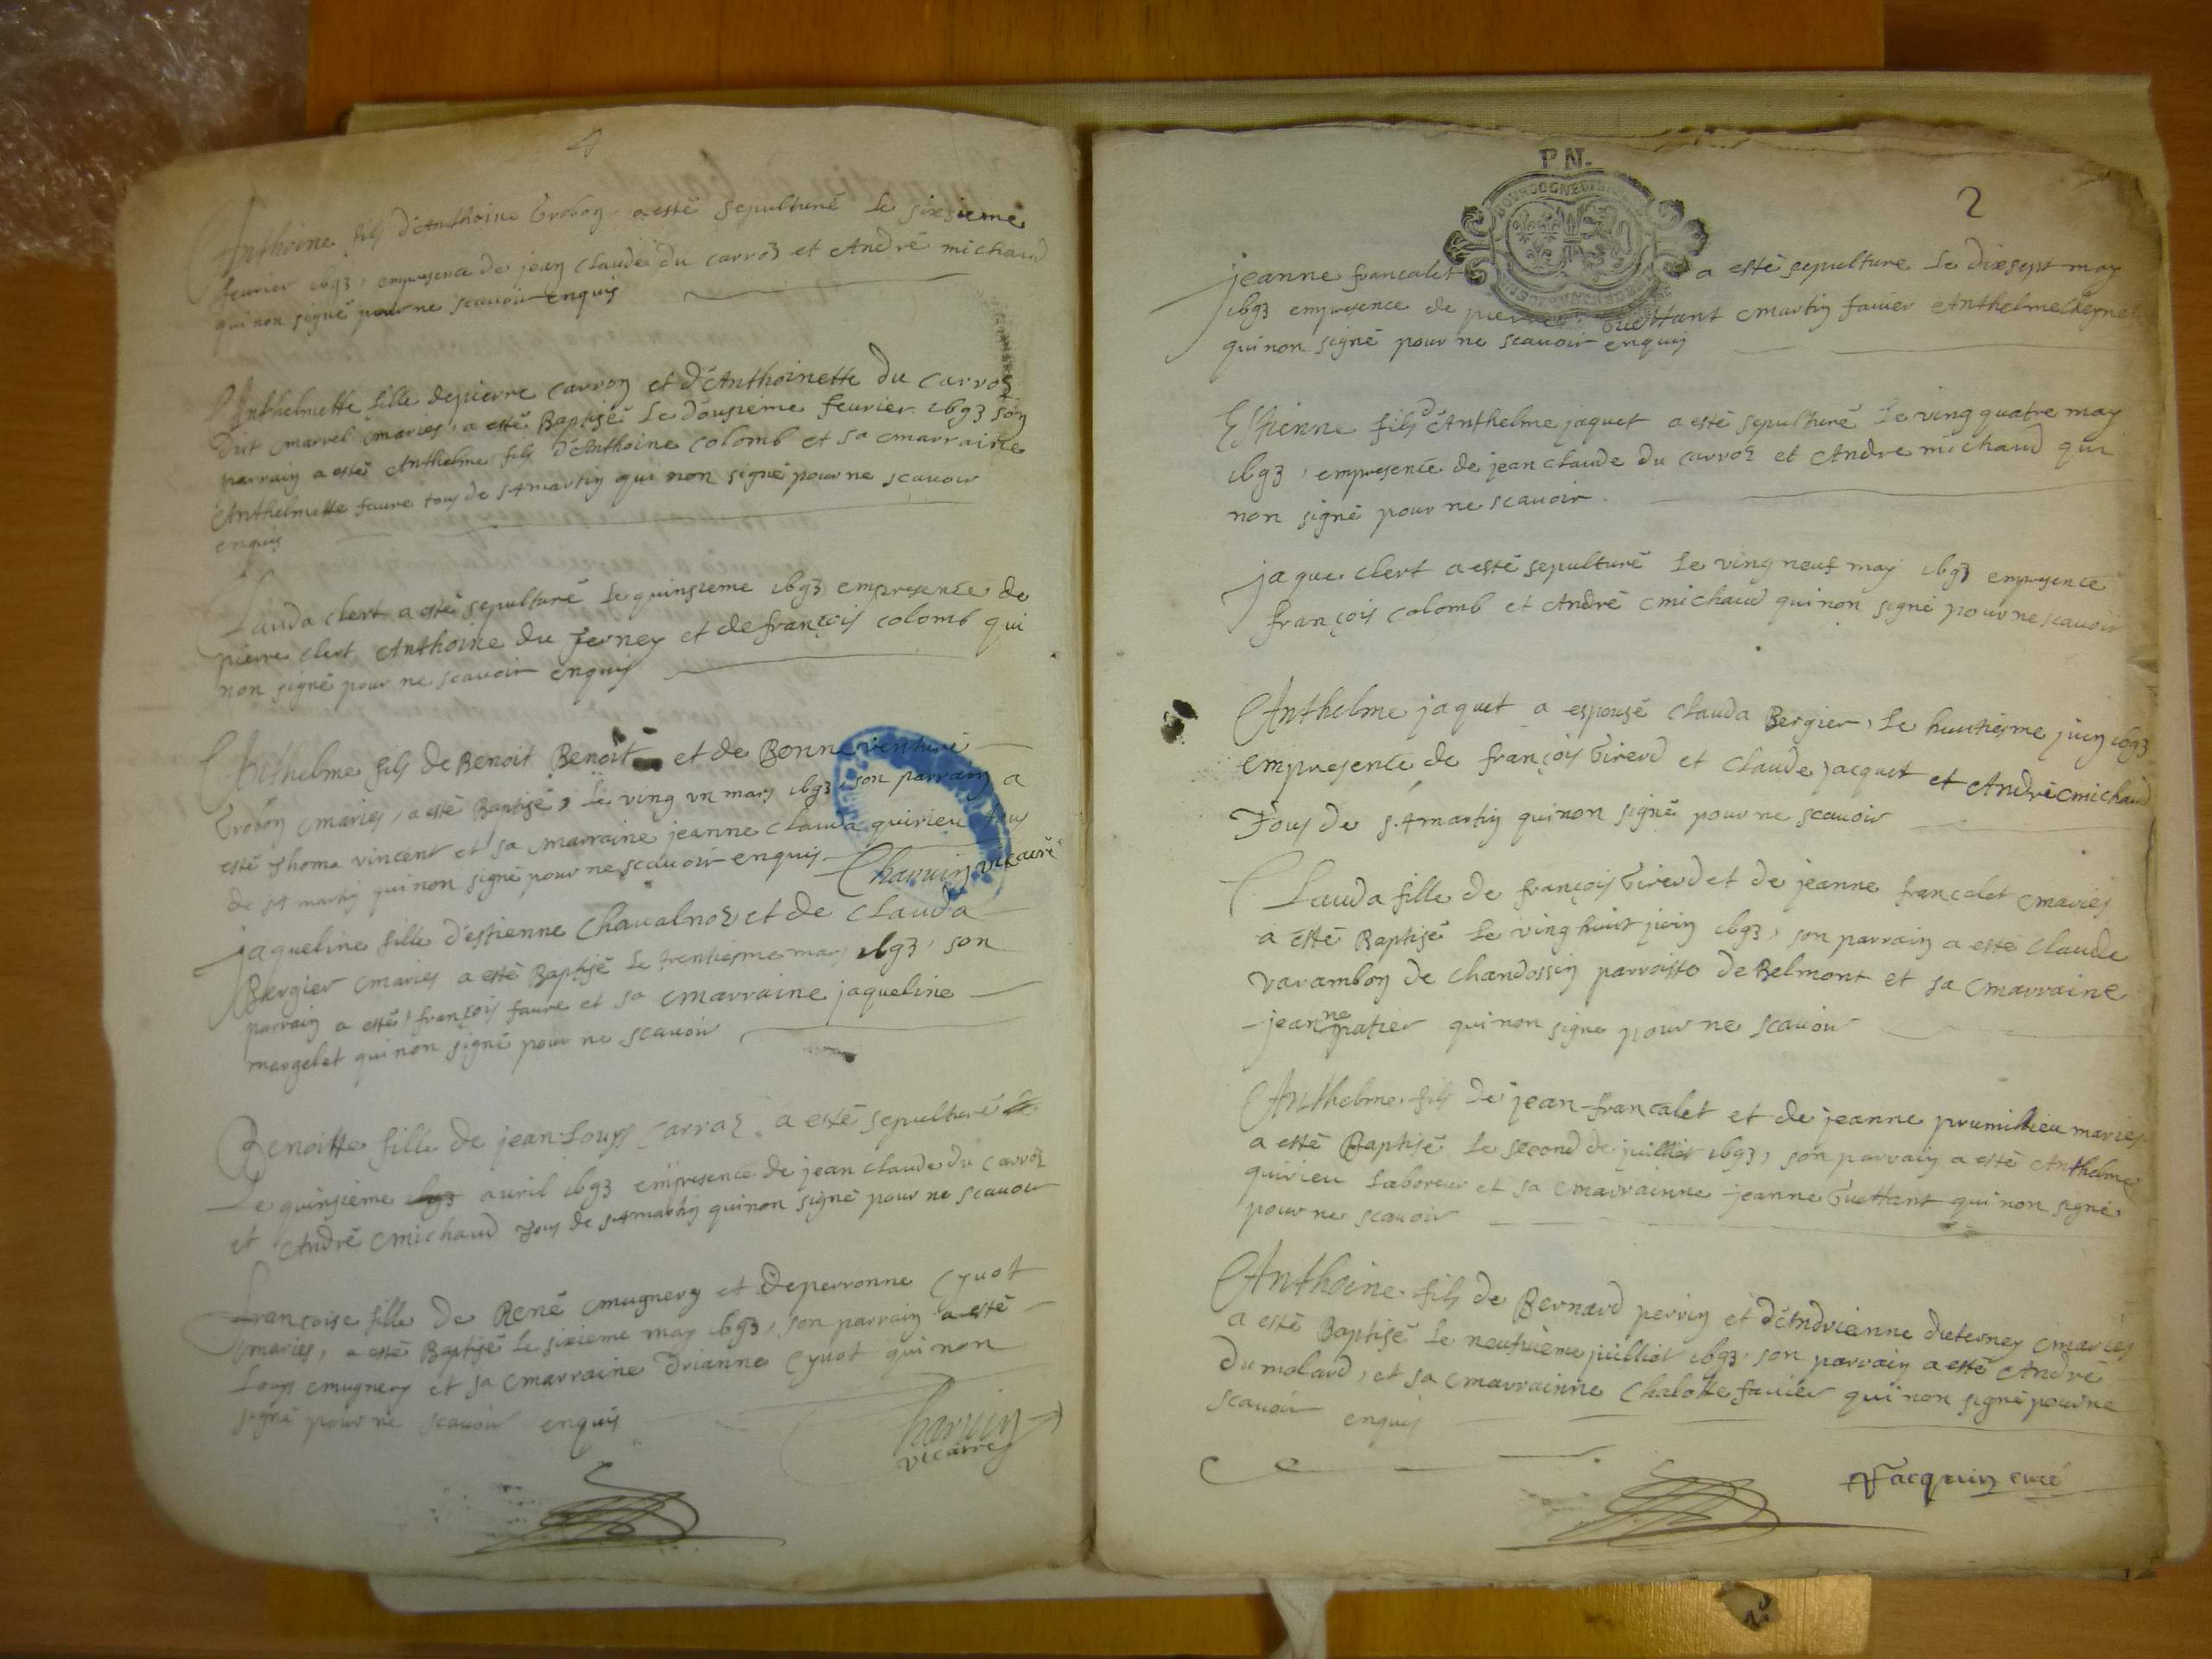 Anthoine fils d'Anthoine Trobon a esté sepulturé le sixsieme
feurier 1693, empresence de jean claude du carroz et André michaud
qui non signé pour ne scauoir enquis
Anthelmette fille de pierre carron et d'Anthoinette du carroz
dit marrel mariés, a esté Baptisé le dousieme feurier 1693 son
parrain a esté Anthelme fils d'Anthoine colomb et sa marraine
Anthelmette faure tous de st martin qui non signé pour ne scauoir
enquis
Clauda clert a esté sepulturé le quinsieme 1693 empresence de
pierre clert Anthoine du Terney et de françois colomb qui
non signé pour ne scauoir enquis
Anthelme fils de Benoit Benoit et de Bonneventure
Trobon mariés, a esté Baptisé, le ving vn mars 1693, son parrain a
esté Thoma vincent et sa marraine jeanne clauda quirieu tous
de st martin qui non signé pour ne scauoir enquis Charuin vicaire
jaqueline fille d'estienne Chaualnoz et de Clauda
Bergier mariés a esté Baptisé le trentiesme mars 1693, son
parrain a esté, françois faure et sa marraine jaqueline
margelet qui non signé pour ne scauoir
Benoitte fille de jean Louys Carraz a esté sepulturé le
Le quinsieme 1693 auril 1693 empresence de jean claude du carroz
et André michaud tous de st martin qui non signé pour ne scauoir
françoise fille de René mugnery et de perronne Cyuot
mariés, a esté Baptisé le sixieme may 1693, son parrain a esté
Louys mugnery et sa marraine drianne Cyuot qui non
signé pour ne scauoir enquis
Charuin
vicaire
P.N.
2
jeanne francalet a esté sepulture le dixsept may
1693 empresence de pierre Guettant martin fauier Anthelme
qui non signé pour ne scauoir enquis
Estienne fils d'Anthelme jaquet a esté sepulturé le ving quatre may
1693, empresence de jean claude du carroz et Andre michaud qui
non signé pour ne scauoir
jaque clert a esté sepulturé le ving neuf may 1693 empresence
françois colomb et André michaud qui non signé pour ne scauoir
Anthelme jaquet a espousé clauda Bergier, le huitiesme juin 1693
empresence de françois Girerd et claude jacquet et André michaud
Tous de st martin qui non signé pour ne scauoir
Clauda fille de françois Girerd et de jeanne francalet mariés
a esté Baptisé le ving huit juin 1693, son parrain a esté claude
varambon de chandossin parroisse de Belmont et sa marraine
jeanne patier qui non signe pour ne scauoir
Anthelme fils de jean francalet et de jeanne prumilieu mariés
a esté Baptisé le second de juillet 1693, son parrain a esté Anthelme
quirieu laboreur et sa marrainne jeanne Guettant qui non signé
pour ne scauoir
Anthoine fils de Bernard perrin et d'Andrienne duterney mariés
a esté Baptisé le neufuième juilliet 1693, son parrain a esté André
du molard, et sa marrainne Chalotte fauier qui non signé pour ne
scauoir enquis
Jacquin curé